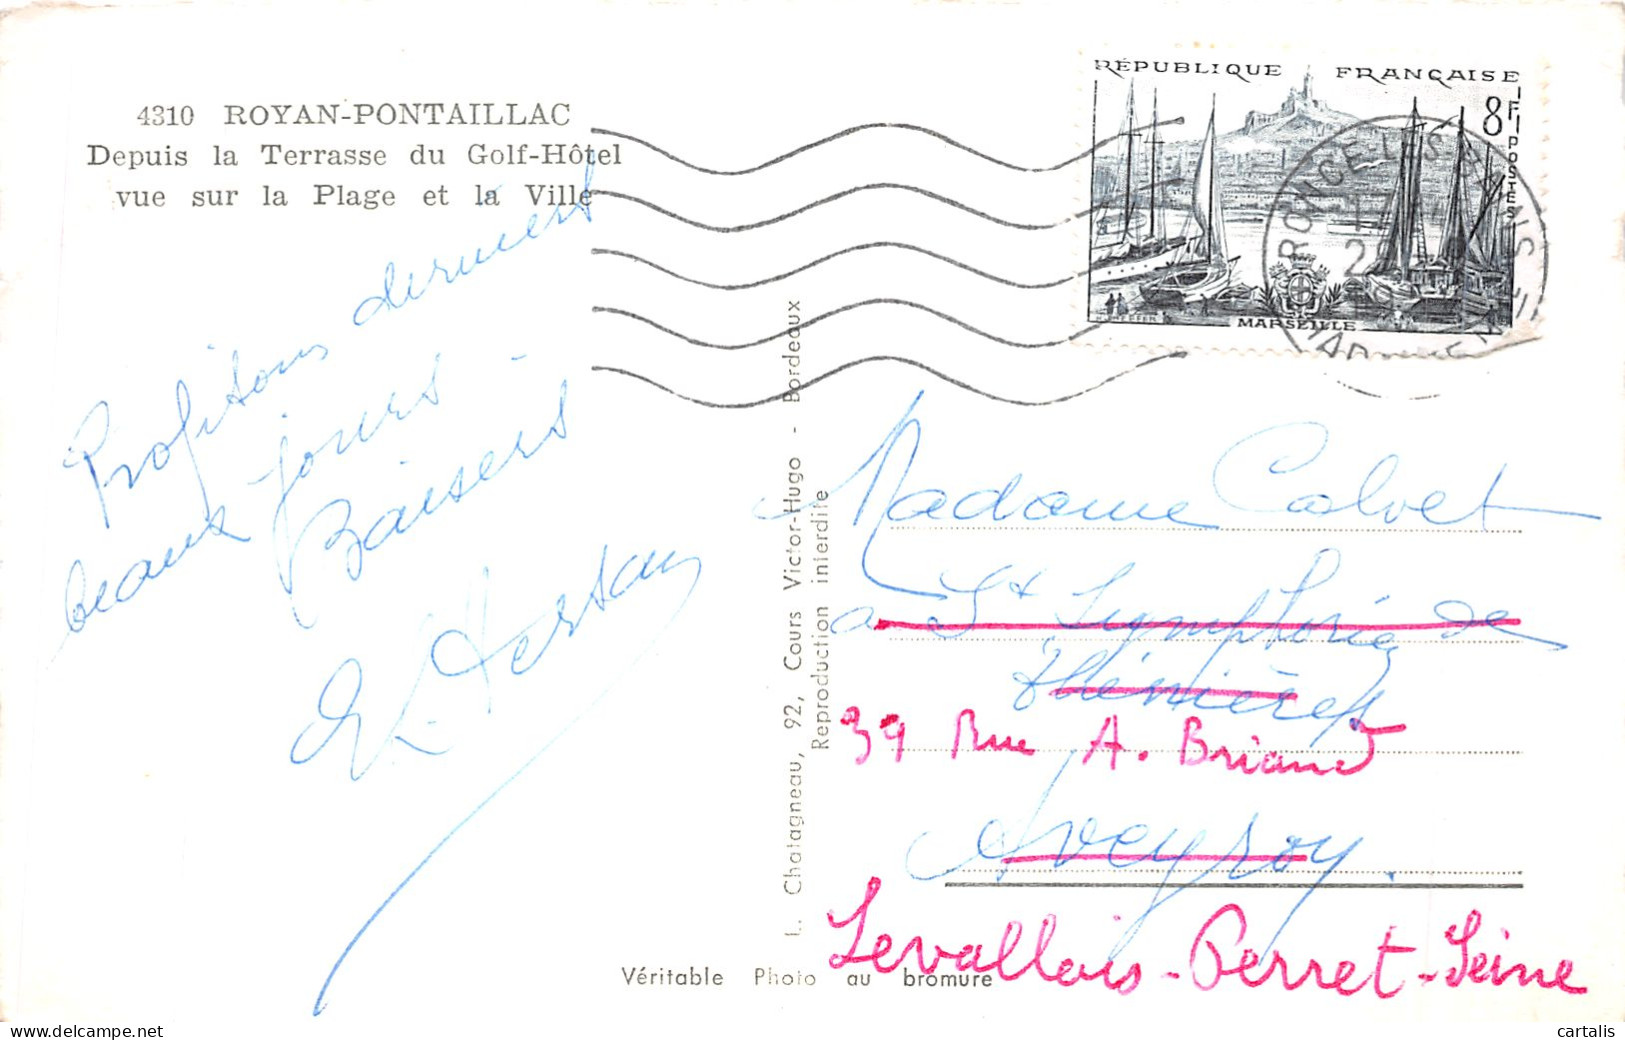 4310 ROYAN-PONTAILLAC
Depuis la Terrasse du Golf-Hôtel
vue sur la Plage et la Ville
Profitons derniers
beaux jours
Baisers
Hersan
RÉPUBLIQUE FRANÇAISE
8F
POSTES
MARSEILLE
RONCE LES BAINS
L. Chatagneau, 92, Cours Victor-Hugo - Bordeaux
Reproduction interdite
Madame Calvet
a St Symphorien de
Thénières
39 Rue A. Briand
Aveyron.
Levallois-Perret-Seine
Véritable Photo au bromure
cartalis